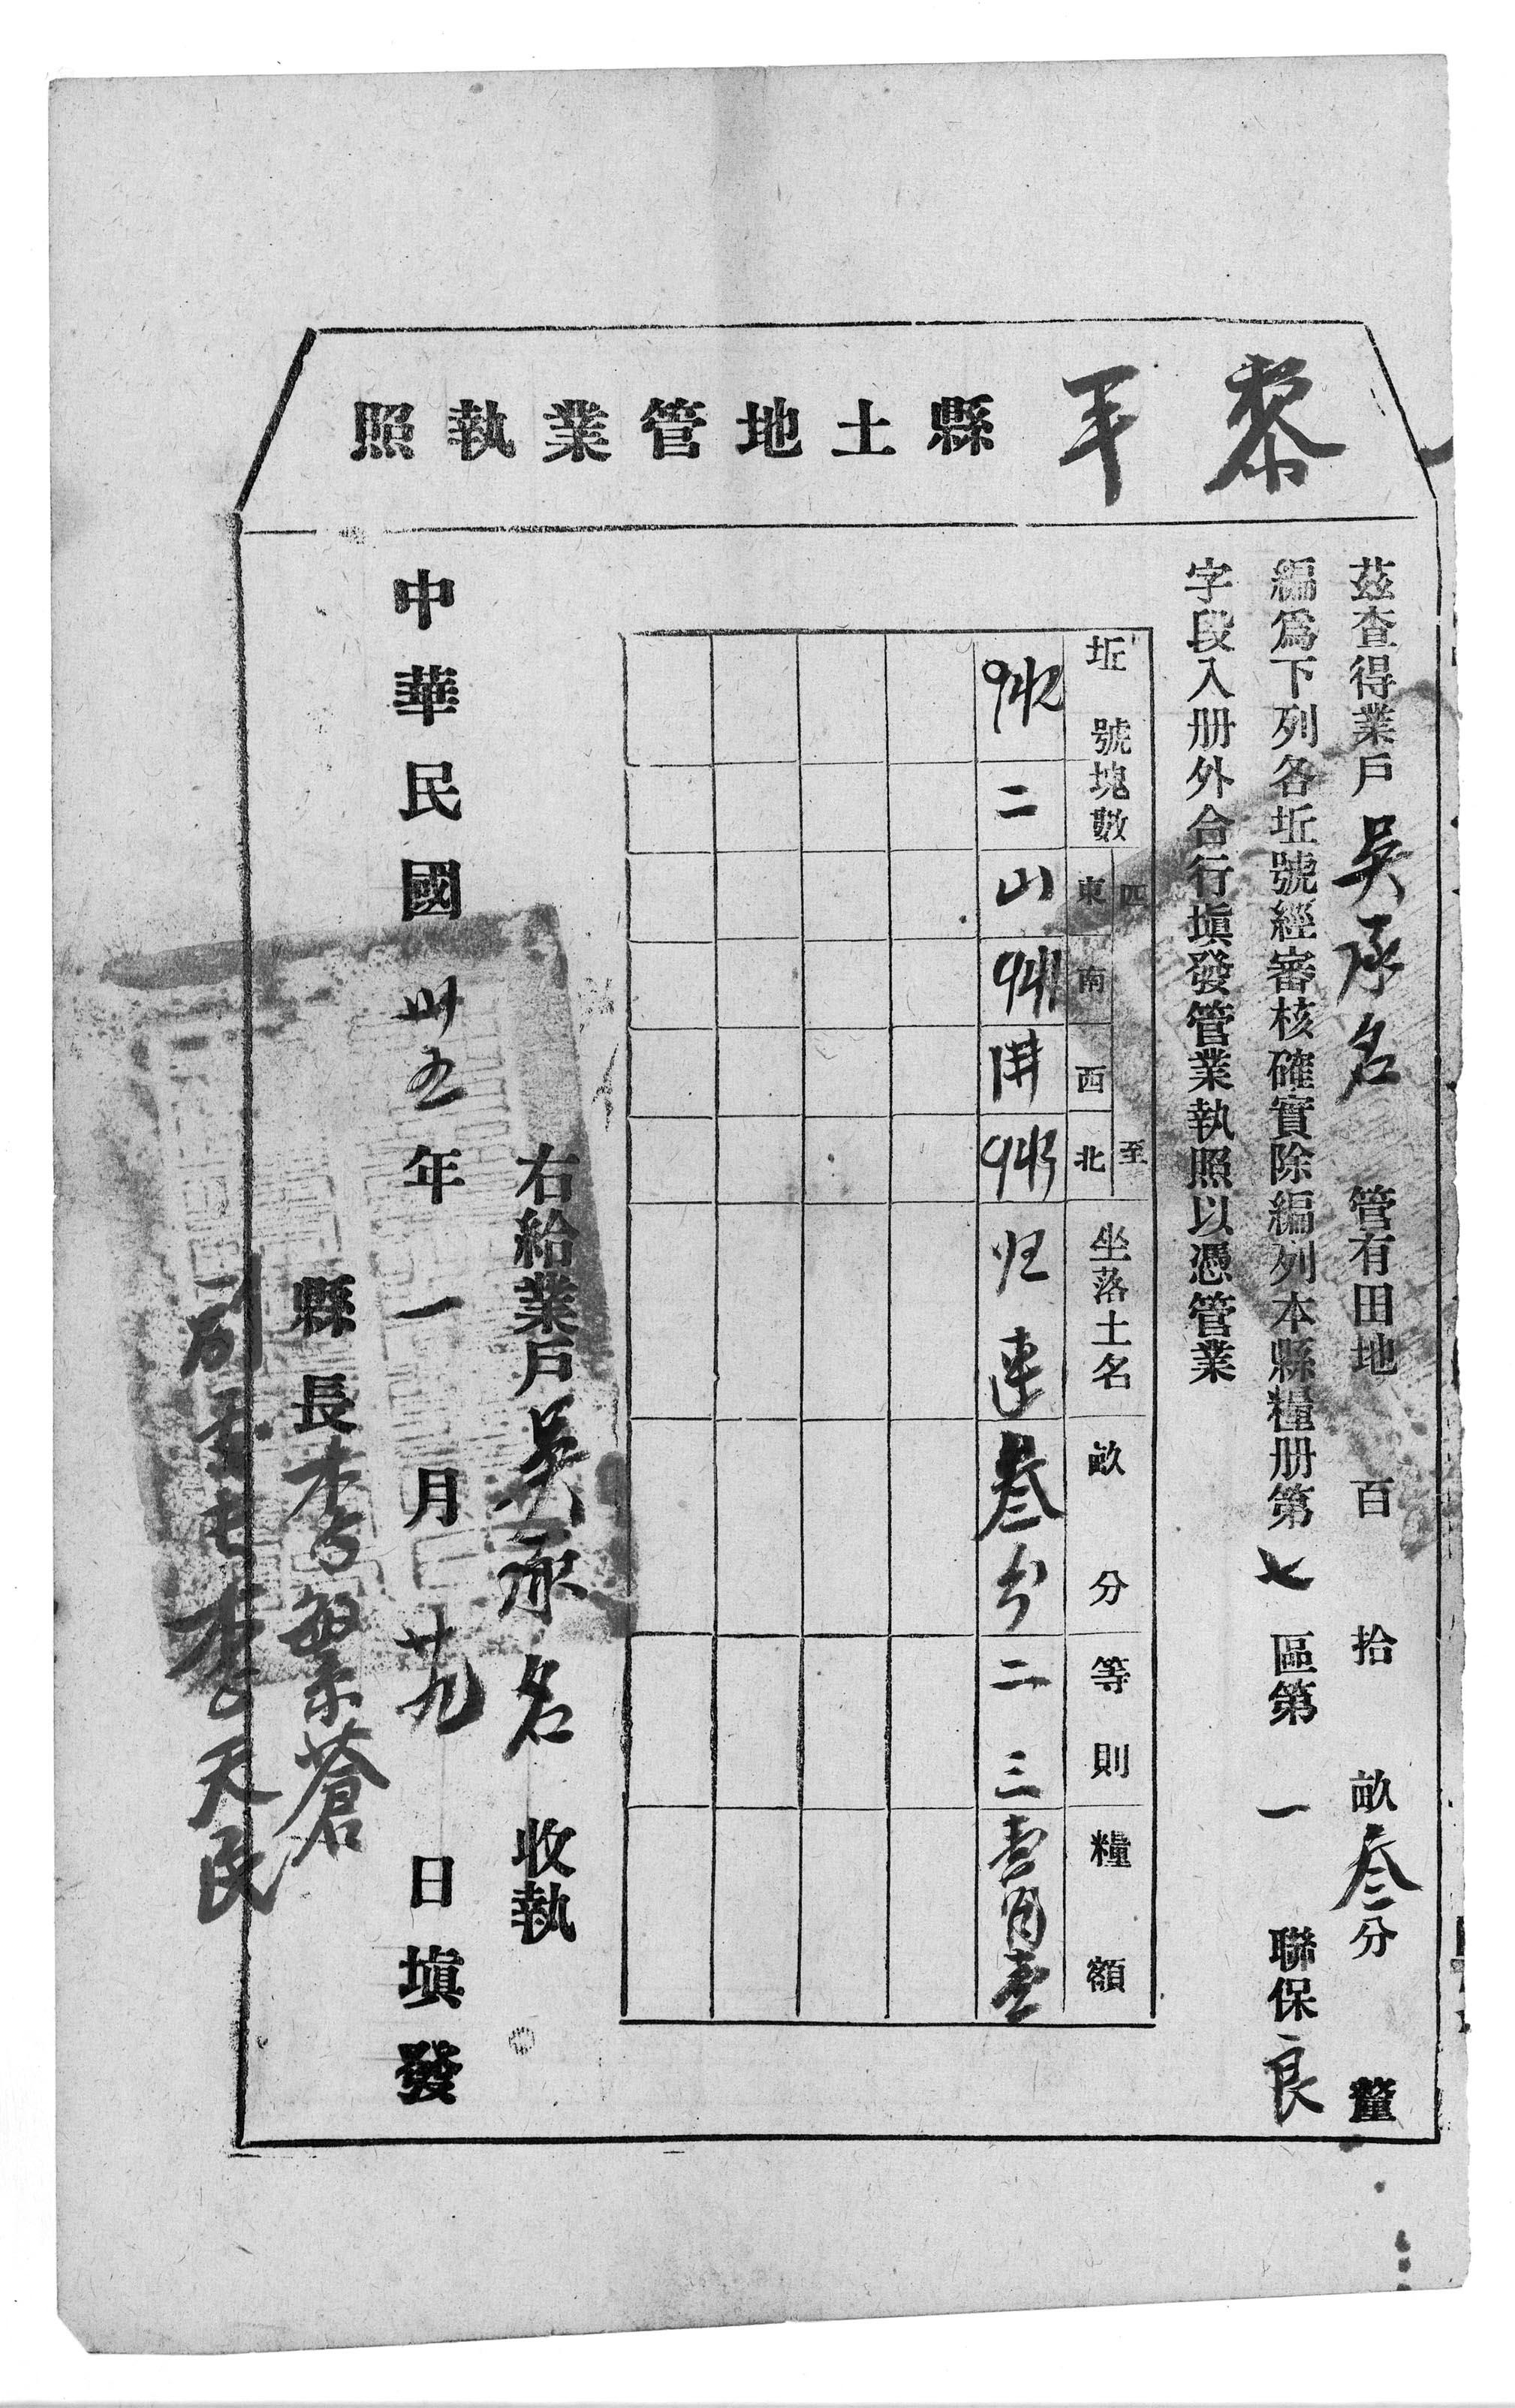 黎平縣土地管業執照
茲查得業戶吳承名管有田地百拾畝叁分釐
編爲下列各坵號經審核確實除編列本縣糧册第七區第一聯保良
字段入册外合行塡發管業執照以憑管業
坵號 塊數 四至 東 南 西 北 坐落土名 畝分 等則 糧額
942 二 山 941 井 943 归 叁分 二 三 壹角壹
右給業戶吳承名收執
中華民國卅五年一月廿九日塡發
縣長李繁蒼
李天民